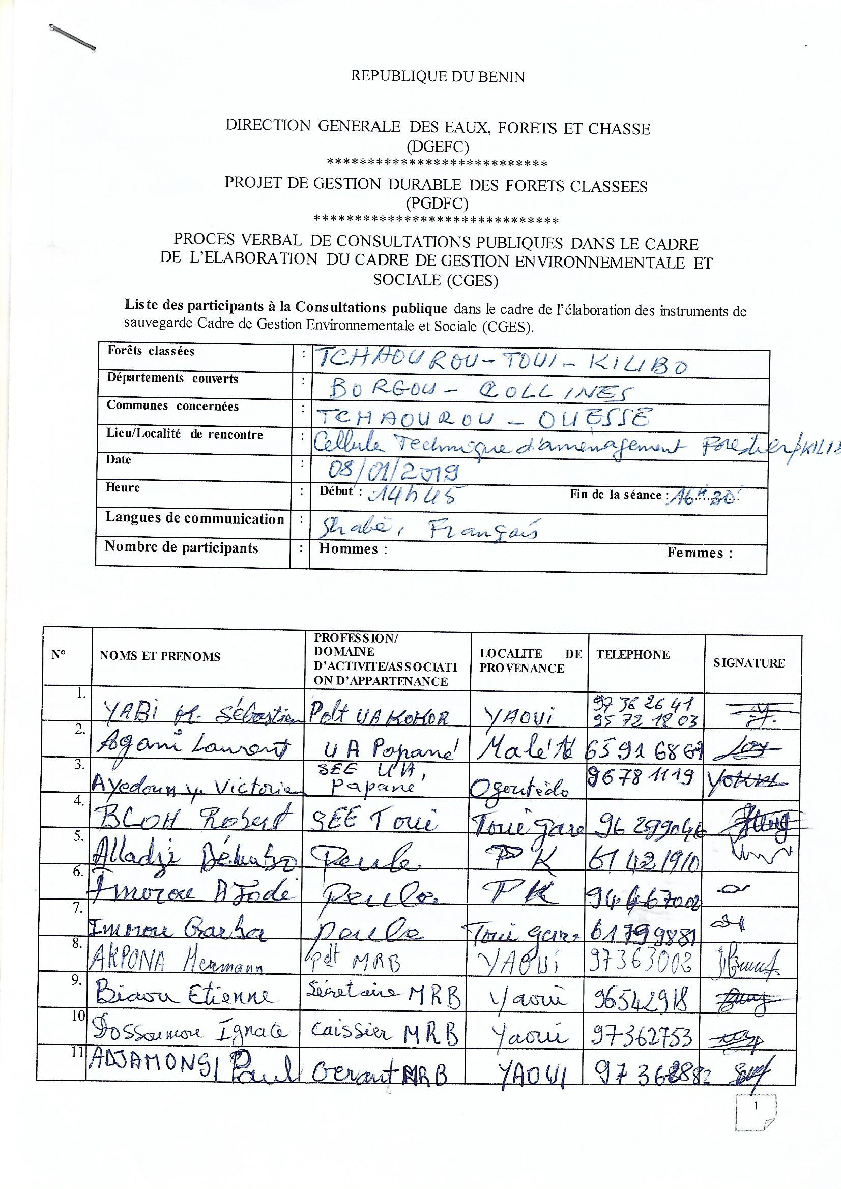 REPUBLIQUE DU BENIN
DIRECTION GENERALE DES EAUX, FORETS ET CHASSE
(DGEFC)
***************************
PROJET DE GESTION DURABLE DES FORETS CLASSEES
(PGDFC)
******************************
PROCES VERBAL DE CONSULTATIONS PUBLIQUES DANS LE CADRE
DE L'ELABORATION DU CADRE DE GESTION ENVIRONNEMENTALE ET
SOCIALE (CGES)
Liste des participants à la Consultations publique dans le cadre de l'élaboration des instruments de
sauvegarde Cadre de Gestion Environnementale et Sociale (CGES).
Forêts classées : TCHAOUROU-TOUI-KILIBO
Départements couverts : BORGOU - COLLINES
Communes concernées : TCHAOUROU - OUESSE
Lieu/Localité de rencontre : Cellule Technique d'aménagement Forestier/KILIB
Date : 08/01/2019
Heure : Début : 14h45 Fin de la séance : 16h30
Langues de communication : Shabè, Français
Nombre de participants : Hommes : Femmes :
N° NOMS ET PRENOMS PROFESSION/ DOMAINE D'ACTIVITE/ASSOCIATI ON D'APPARTENANCE LOCALITE DE PROVENANCE TELEPHONE SIGNATURE
1. YABI M. Sébastien Pdt UA KOKOR YAOUI 97 36 26 41 95 72 18 03
2. Agani Laurent UA Papané 65 91 68 69
3. Ayedoun Y. Victorie SEE UIA, Papane Ogoutèdo 96 78 11 19
4. BLOH Robert SEE Toui Toui gare
5. Alladji Peule PK 61 42 19 10
6. Peulo PK
7. Immorou Garba peulo Toui gare 61 79 98 81
8. AKPONA Hermann pdt MRB YAOUI 97363002
9. Biaou Etienne Sécretaire MRB Yaoui 96542918
10 Dossoumou Ignace Caissier MRB Yaoui 97362753
11 ADJAMONSI Paul Gerant MRB YAOUI
1